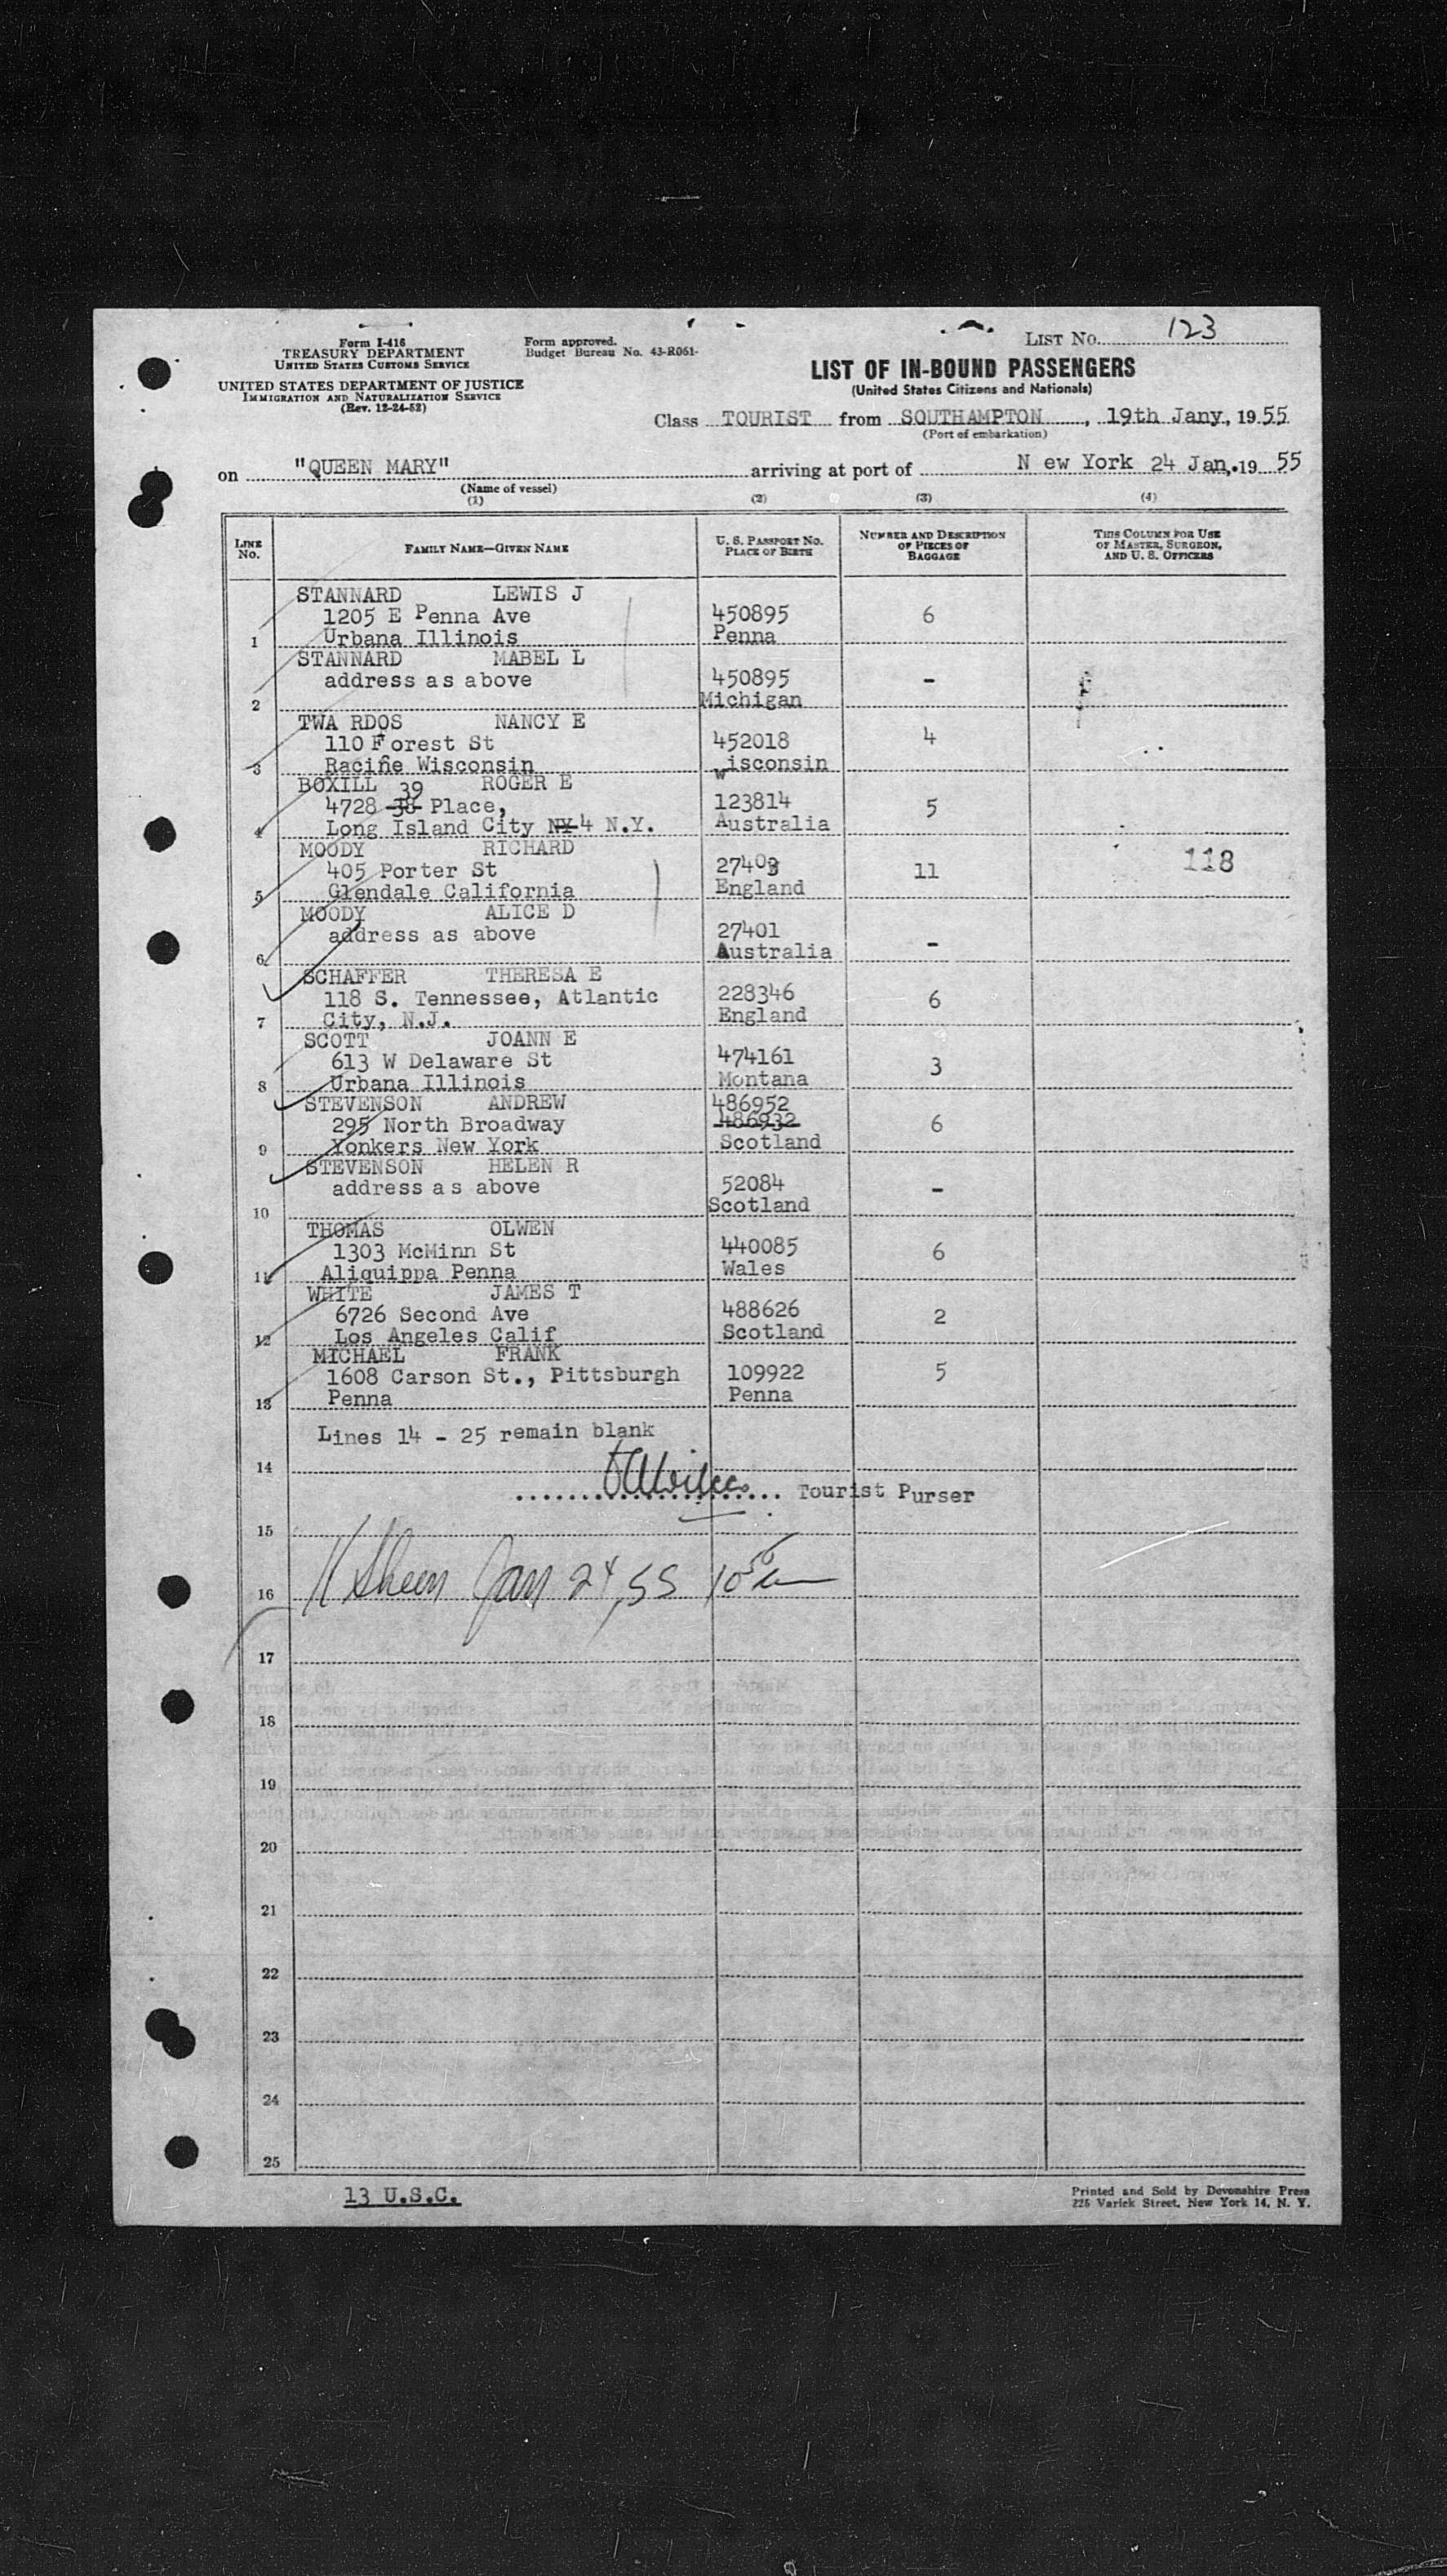 LIST No. 123
Form I-416
TREASURY DEPARTMENT
UNITED STATES CUSTOMS SERVICE
UNITED STATES DEPARTMENT OF JUSTICE
IMMIGRATION AND NATURALIZATION SERVICE
(Rev. 12-24-52)
Form approved.
Budget Bureau No. 43-R061-
LIST OF IN-BOUND PASSENGERS
(United States Citizens and Nationals)
Class TOURIST from SOUTHAMPTON, 19th Jany, 1955
(Port of embarkation)
on "QUEEN MARY" arriving at port of N ew York 24 Jan,.19 55
(Name of vessel)
(1) (2) (3) (4)
LINE No. FAMILY NAME—GIVEN NAME U. S. PASSPORT NO. PLACE OF BIRTH NUMBER AND DESCRIPTION OF PIECES OF BAGGAGE THIS COLUMN FOR USE OF MASTER, SURGEON, AND U. S. OFFICERS
STANNARD LEWIS J
1205 E Penna Ave 450895 6
1 Urbana Illinois Penna
STANNARD MABEL L
address as above 450895 -
2 Michigan
TWA RDOS NANCY E
110 Forest St 452018 4
3 Racine Wisconsin Wisconsin
BOXILL 39 ROGER E
4728 38 Place, 123814 5
4 Long Island City NY 4 N.Y. Australia
MOODY RICHARD 118
405 Porter St 27403 11
5 Glendale California England
MOODY ALICE D
address as above 27401 -
6 Australia
SCHAFFER THERESA E
118 S. Tennessee, Atlantic 228346 6
7 City, N.J. England
SCOTT JOANN E
613 W Delaware St 474161 3
8 Urbana Illinois Montana
STEVENSON ANDREW 486952
295 North Broadway 486932 6
9 Yonkers New York Scotland
STEVENSON HELEN R
address as above 52084 -
10 Scotland
THOMAS OLWEN
1303 McMinn St 440085 6
11 Aliquippa Penna Wales
WHITE JAMES T
6726 Second Ave 488626 2
12 Los Angeles Calif Scotland
MICHAEL FRANK
1608 Carson St., Pittsburgh 109922 5
13 Penna Penna
Lines 14 - 25 remain blank
14
Tourist Purser
15
16 Jan 24, 55
17
18
19
20
21
22
23
24
25
13 U.S.C.
Printed and Sold by Devonshire Press
225 Varick Street, New York 14, N. Y.